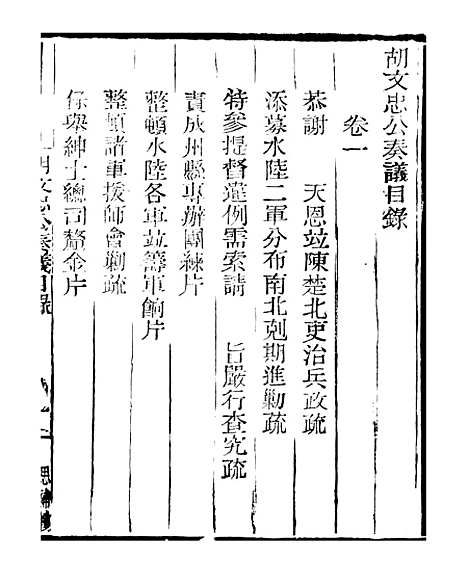 胡文忠公奏議目錄
卷一
恭謝　天恩竝陳楚北吏治兵政疏
添募水陸二軍分布南北剋期進勦疏
特參提督違例需索請　旨嚴行查究疏
責成州縣專辦團練片
整頓水陸各軍竝籌軍餉片
整頓諸軍援師會剿疏
保舉紳士總司釐金片
胡文忠公奏議目錄